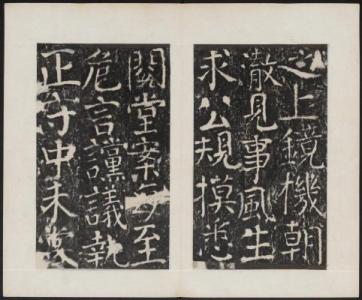 之上鏡機朝
澈見事風生
求公規摸
閱堂案每至
危言讜議執
正守中未